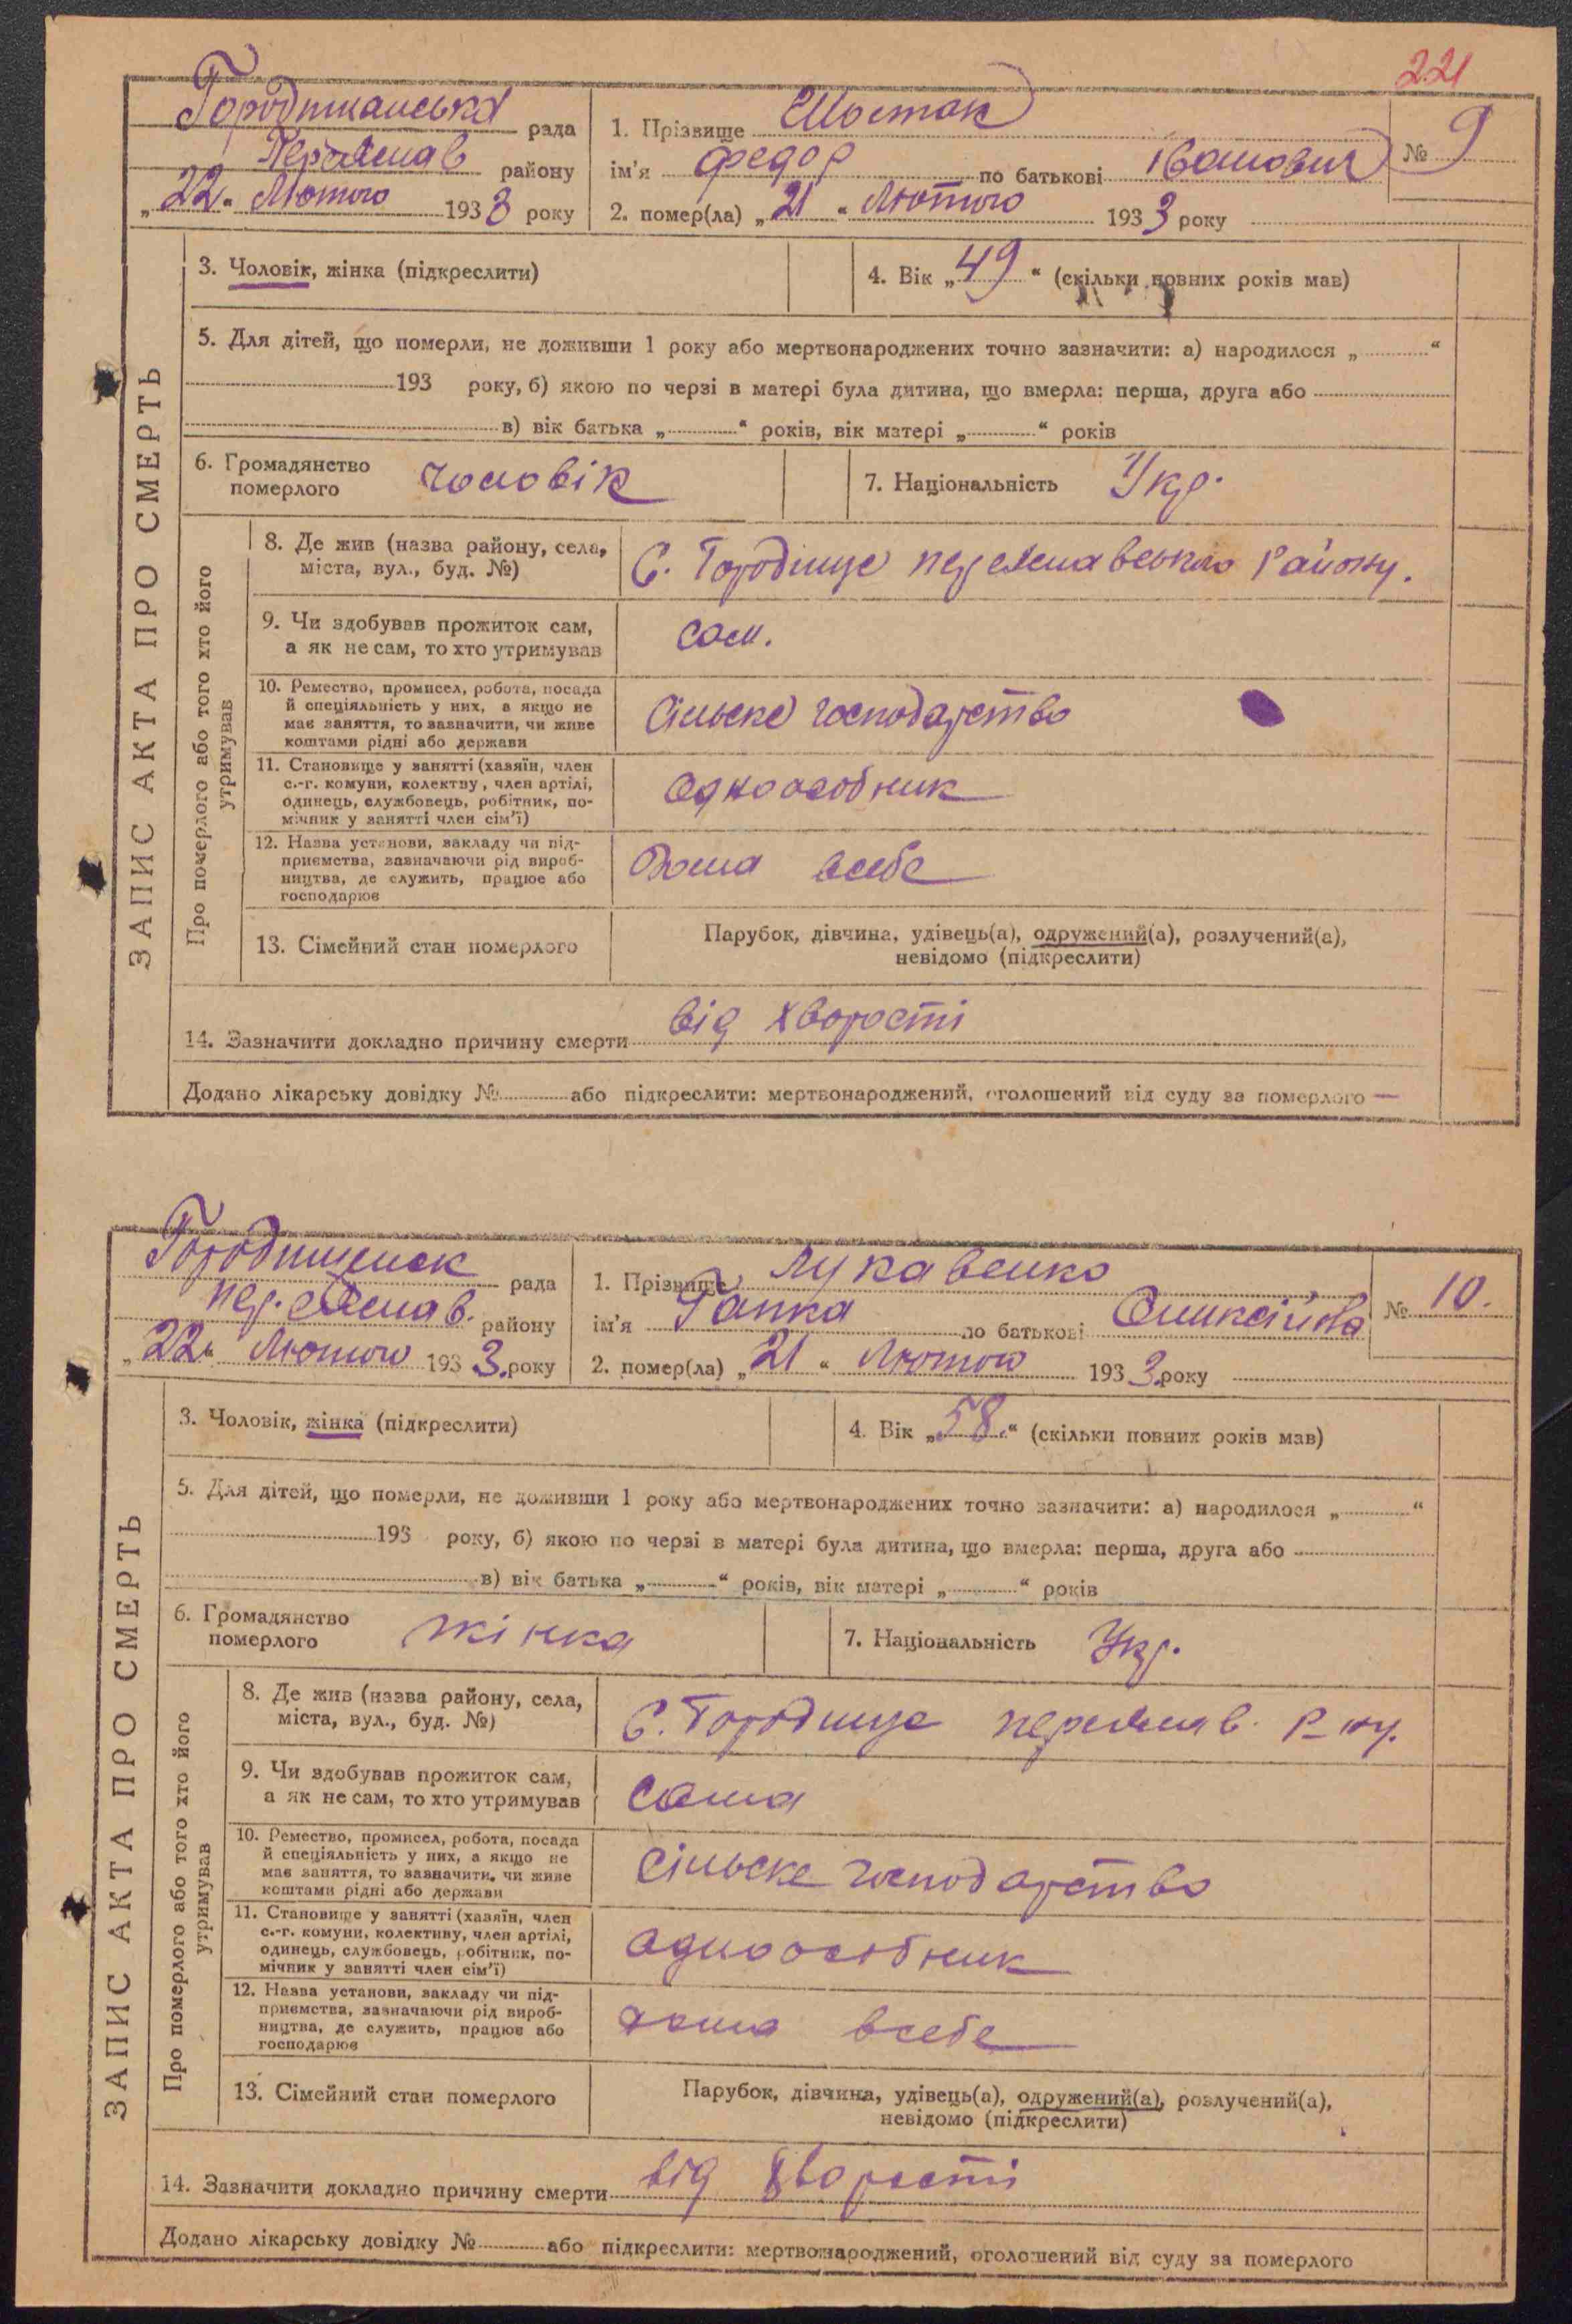 221
Городищанська рада
Переяслав району
„22“ Лютого 1933 року
1. Прізвище Шостак
ім'я Федор по батькові Іванович
№ 9
2. помер(ла) „21“ Лютого 1933 року
ЗАПИС АКТА ПРО СМЕРТЬ
3. Чоловік, жінка (підкреслити)
4. Вік „49“ (скільки повних років мав)
5. Для дітей, що померли, не доживши 1 року або мертвонароджених точно зазначити: а) народилося „ “
193 року, б) якою по черзі в матері була дитина, що вмерла: перша, друга або
в) вік батька „ “ років, вік матері „ “ років
6. Громадянство
померлого
чоловік
7. Національність Укр.
Про померлого або того хто його
утримував
8. Де жив (назва району, села,
міста, вул., буд. №)
С. Городище переяславського району.
9. Чи здобував прожиток сам,
а як не сам, то хто утримував
сам.
10. Ремество, промисел, робота, посада
й спеціяльність у них, а якщо не
має заняття, то зазначити, чи живе
коштами рідні або держави
сільске господарство
11. Становище у занятті (хазяїн, член
с.-г. комуни, колективу, член артілі,
одинець, службовець, робітник, по-
мічник у занятті член сім'ї)
одноособник
12. Назва установи, закладу чи під-
приємства, зазначаючи рід вироб-
ництва, де служить, працює або
господарює
дома всебе
13. Сімейний стан померлого
Парубок, дівчина, удівець(а), одружений(а), розлучений(а),
невідомо (підкреслити)
14. Зазначити докладно причину смерти від хворости
Додано лікарську довідку № або підкреслити: мертвонароджений, оголошений від суду за померлого —
Городищенск рада
переяслав. району
„22“ Лютого 1933. року
1. Прізвище Лукавенко
ім'я Гапка по батькові Оликсіївна
№ 10.
2. помер(ла) „21“ Лютого 1933. року
ЗАПИС АКТА ПРО СМЕРТЬ
3. Чоловік, жінка (підкреслити)
4. Вік „58.“ (скільки повних років мав)
5. Для дітей, що померли, не доживши 1 року або мертвонароджених точно зазначити: а) народилося „ “
193 року, б) якою по черзі в матері була дитина, що вмерла: перша, друга або
в) вік батька „ “ років, вік матері „ “ років
6. Громадянство
померлого
жінка
7. Національність Укр.
Про померлого або того хто його
утримував
8. Де жив (назва району, села,
міста, вул., буд. №)
С. Городище переяслав. р-ну.
9. Чи здобував прожиток сам,
а як не сам, то хто утримував
сама
10. Ремество, промисел, робота, посада
й спеціяльність у них, а якщо не
має заняття, то зазначити, чи живе
коштами рідні або держави
сільске господарство
11. Становище у занятті (хазяїн, член
с.-г. комуни, колективу, член артілі,
одинець, службовець, робітник, по-
мічник у занятті член сім'ї)
одноособник
12. Назва установи, закладу чи під-
приємства, зазначаючи рід вироб-
ництва, де служить, працює або
господарює
дома всебе
13. Сімейний стан померлого
Парубок, дівчина, удівець(а), одружений(а), розлучений(а),
невідомо (підкреслити)
14. Зазначити докладно причину смерти від хворости
Додано лікарську довідку № або підкреслити: мертвонароджений, оголошений від суду за померлого